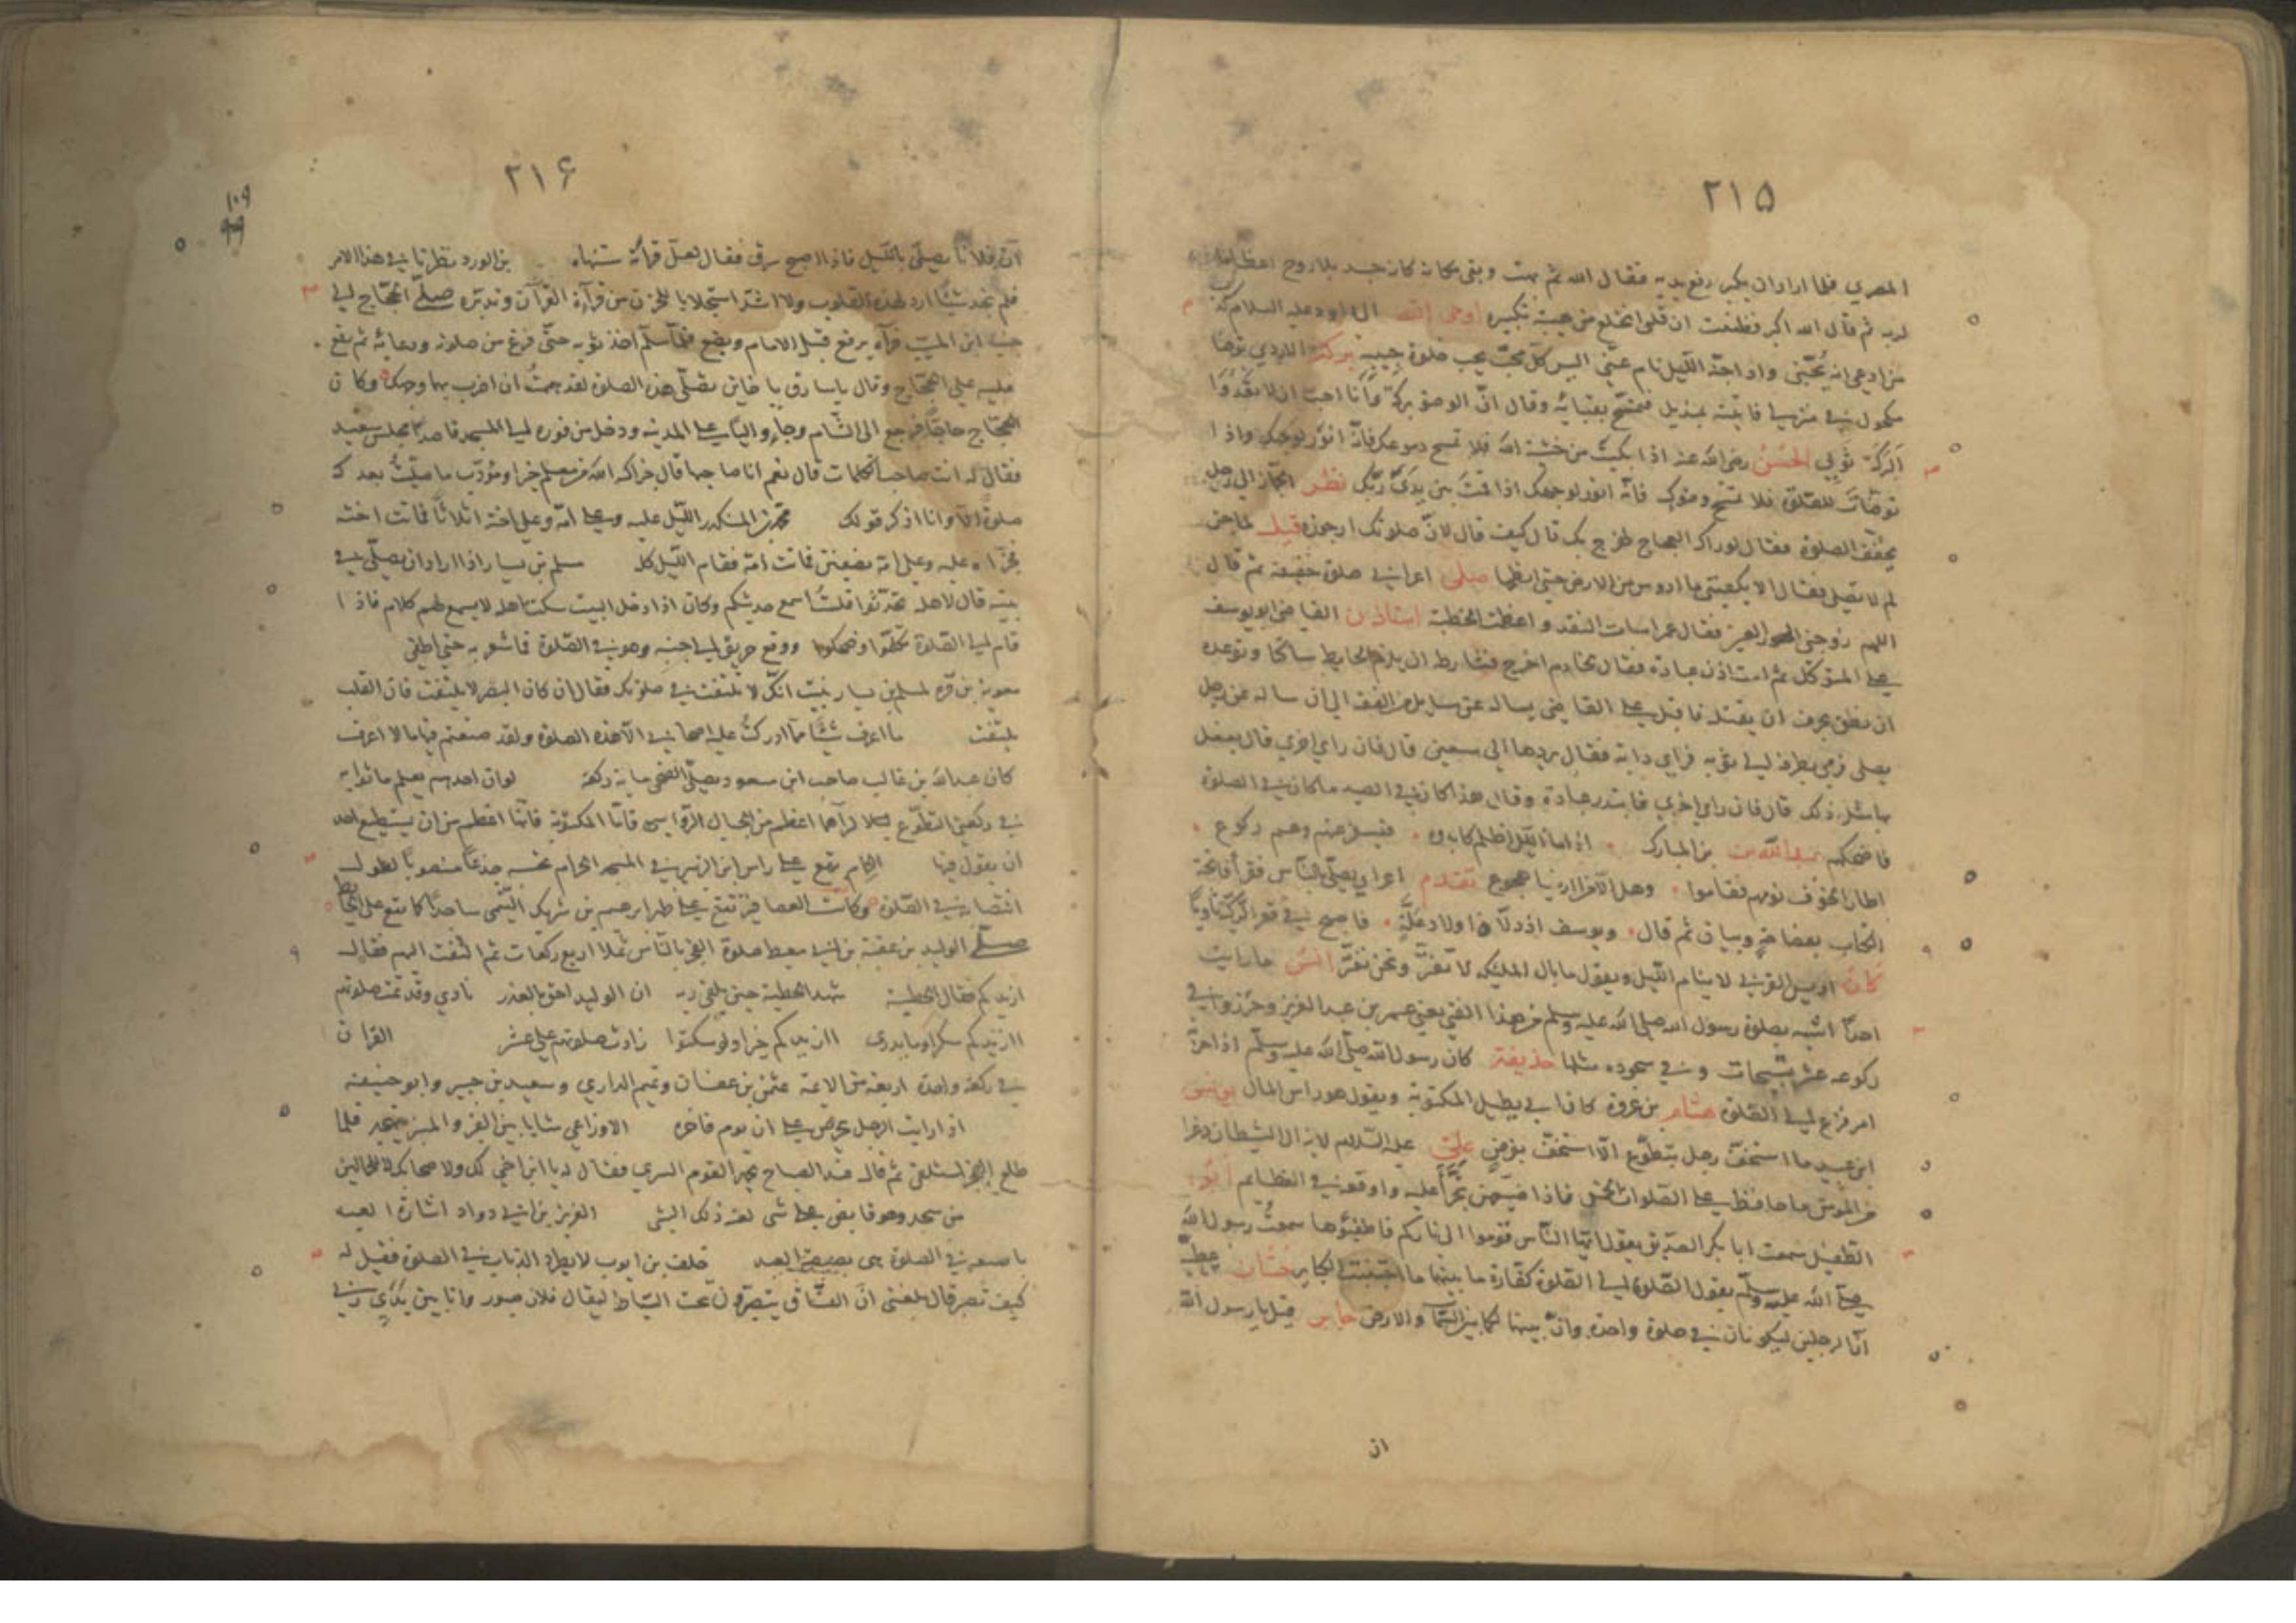 ٢١٥
المصري فلما اراد ان يكبر رفع يديه فقال الله ثم بهت وبقى كانه كان جسد بلا روح اعظاما
لربه ثم قال الله اكبر فظننت ان قلبى انخلع من هيبة تكبيره اوحى الله الى داود عليه السلام كذب
من ادعى انه يحبّنى واذا جنّه الليل نام عنّى اليس كلّ محبّ يحب خلوة حبيبه بركة الازدي توضا
مكحول في منزله فاتيته بمنديل فمسح بقبائه وقال انّ الوضؤ بركة وانا احبّ ان لا تعدوا
البركة ثوبى الحسن رضى الله عنه اذا بكيت من خشية الله فلا تمسح دموعك فانّه انور لوجهك واذا
توضأت للصّلوة فلا تمسح وضوئك فانّه انور لوجهك اذا قمت بين يدىّ ربّك نظر الجمّاز الى رجل
يخفّف الصلوة فقال لو راك العجاج طرح بك قال كيف قال لانّ صلوتك ارجوزة قيل لماجن
لم لا تصلّى فقال الا يكفينى ما ادوس من الارض حتى انطحها صلّى اعرابى صلوة خفيفة ثم قال
اللهم زوجنى الحور العين فقال عمر اسات النقد واعظمت الخطبة استاذن القاضى ابو يوسف
على المتوكّل ثم استاذن عبادة فقال لخادم اخرج فشارط ان يلزم الحايط ساكتا وتوعده
ان نطق بحرف ان يقتله فاقبل على القاضى يساله عن مسايل من الفقه الى ان ساله عن رجل
يصلى فرمى بطرفه الى ثوبه فراى دابة فقال يردها الى سعين قال فان راى اخرى قال يفعل
بها مثل ذلك قال فان راى اخرى فابتدر عبادة وقال هذا كان في الصيد ما كان في الصلوة
فاضحكهم عبد الله بن المبارك اذا ما الليل اظلم كابدوه فيسفر عنهم وهم ركوع
اطار الخوف نومهم فقاموا واهل الارض في الدنيا هجوع تقدم اعرابى يصلّى بالنّاس فقرأ فاتحة
الكتاب بفصاحة وبيان ثم قال ويوسف اذ دلّاه اولاد علّة فاصبح في قعر الركيّة ثاويا
كان اويس القرني لا ينام الليل ويقول ما بال الملئكة لا تفترّ ونحن نفترّ انس ما رايت
احدا اشبه بصلوة رسول الله صلى الله عليه وسلم من هذا الفتى يعنى عمر بن عبد العزيز وحزروا في
ركوعه عشر تسبيحات وفي سجوده مثلها حذيفة كان رسول الله صلّى الله عليه وسلّم اذا حزبه
امر فزع الى الصّلوة هشام بن عروة كان ابى يطيل المكتوبة ويقول هى راس المال يونس
ابن عبيد ما استخفّ رجل بتطوّع الّا استخفّ بفرض علىّ عليه السّلام لا يزال الشيطان ذعرا
من المؤمن ما حافظ على الصّلوات الخمس فاذا ضيّعهنّ تجرّأ عليه واوقعه في العظايم ابو
الطفيل سمعت ابا بكر الصدّيق يقول ايّها النّاس قوموا الى ناركم فاطفئوها سمعت رسول الله
صلّى الله عليه وسلّم يقول الصّلوة الى الصّلوة كفّارة ما بينهما ما اجتنبت الكباير حسّان بن عطيّة
انّ الرجلين ليكونان في صلوة واحدة وانّ بينهما كما بين السّماء والارض جابر قيل يا رسول الله
ان
٢١٦
١٠٩
٩٩
انّ فلانا يصلّى بالليل فاذا اصبح سرق فقال لعلّ قراءته ستنهاه بن الورد نظرنا في هذا الامر
فلم نجد شيئا ارد لهذه القلوب ولا اشدّ استجلابا للحزن من قرآءة القرآن وتدبّره صلّى الحجّاج الى
جنب ابن المسيّب فرآه يرفع قبل الامام ويضع فلمّا سلّم اخذ بثوبه حتّى فرغ من صلوته ودعائه ثم رفع
نعليه على الحجّاج وقال يا سارق يا خاين تصلّى هذه الصلوة لقد هممت ان اضرب بهما وجهك وكان
الحجّاج حاجّا فرجع الى الشّام وجاء واليا على المدينة ودخل من فوره الى المسجد قاصدا مجلس سعيد
فقال له انت صاحب الكلمات قال نعم انا صاحبها قال جزاك الله من معلّم خيرا ومؤدّب ما صلّيت بعدك
صلوة الّا وانا اذكر قولك محمّد بن المنكدر الليل عليه وعلى امّه وعلى اخته اثلاثا فماتت اخته
فجزّاه عليه وعلى امّه نصفين فماتت امّه فقام الليل كلّه مسلم بن يسار اذا اراد ان يصلّى في
بيته قال لاهله تحدّثوا فلست اسمع حديثكم وكان اذا دخل البيت سكت اهله لا يسمع لهم كلام فاذا
قام الى الصّلوة تكلّموا وضحكوا ووقع حريق الى جنبه وهو في الصّلوة فما شعر به حتى اطفئ
معوية بن قرة لمسلم بن يسار نبّيت انّك لا تلتفت في صلوتك فقال ان كان البصر لا يلتفت فان القلب
يلتفت ما اعرف شيئا ممّا ادركت عليه اصحابى الّا هذه الصلوة ولقد صنعتم فيها ما لا اعرف
كان عبد الله بن غالب صاحب ابن مسعود يصلّى الضحى ماية ركعة لو ان احدهم يعلم ما ثوابه
في ركعتى التطوّع لرآهما اعظم من الجبال الرّواسى فامّا المكتوبة فانّها اعظم من ان يستطيع احد
ان يقول فيها الحمام يقع على راس ابن الزبير في المسجد الحرام تحسبه جذعا منصوبا لطول
انتصابه في الصّلوة وكانت العصافير تقع على ظهر ابرهيم بن شريك التّيمى ساجدا كما تقع على الحايط
صلّى الوليد بن عقبة بن ابى معيط صلوة الفجر بالنّاس ثملا اربع ركعات ثم التفت اليهم فقال
ازيدكم فقال الحطيئة شهد الحطيئة حين يلقى ربه ان الوليد احق بالعذر نادى وقد تمّت صلوتهم
اازيدكم سكرا وما يدرى اازيدكم خيرا ولو سكتوا زادت صلوتهم على عشر القران
في ركعة واحدة اربعة من الائمة عثمن بن عفان وتميم الدارى وسعيد بن جبير وابو حنيفة
اذا رايت الرجل يحرص على ان يوم فاخره الاوزاعى شابا بين القبر والمنبر يتهجد فلمّا
طلع الفجر استلقى ثم قال عند الصباح يحمد القوم السرى فقال له يا ابن اخى لك ولاصحابك لا للجمّالين
من سجد وهو قابض على شئ لعنه ذلك الشئ العزيز بن ابى دواد اشارة العبد
باصبعه في الصلوة هى بصبصة العبد خلف بن ايوب لا يطرد الذباب في الصلوة فقيل له
كيف تصبر قال بلغنى انّ الفسّاق يتصبّرون تحت السّياط ليقال فلان صبور وانا بين يدى ربّى